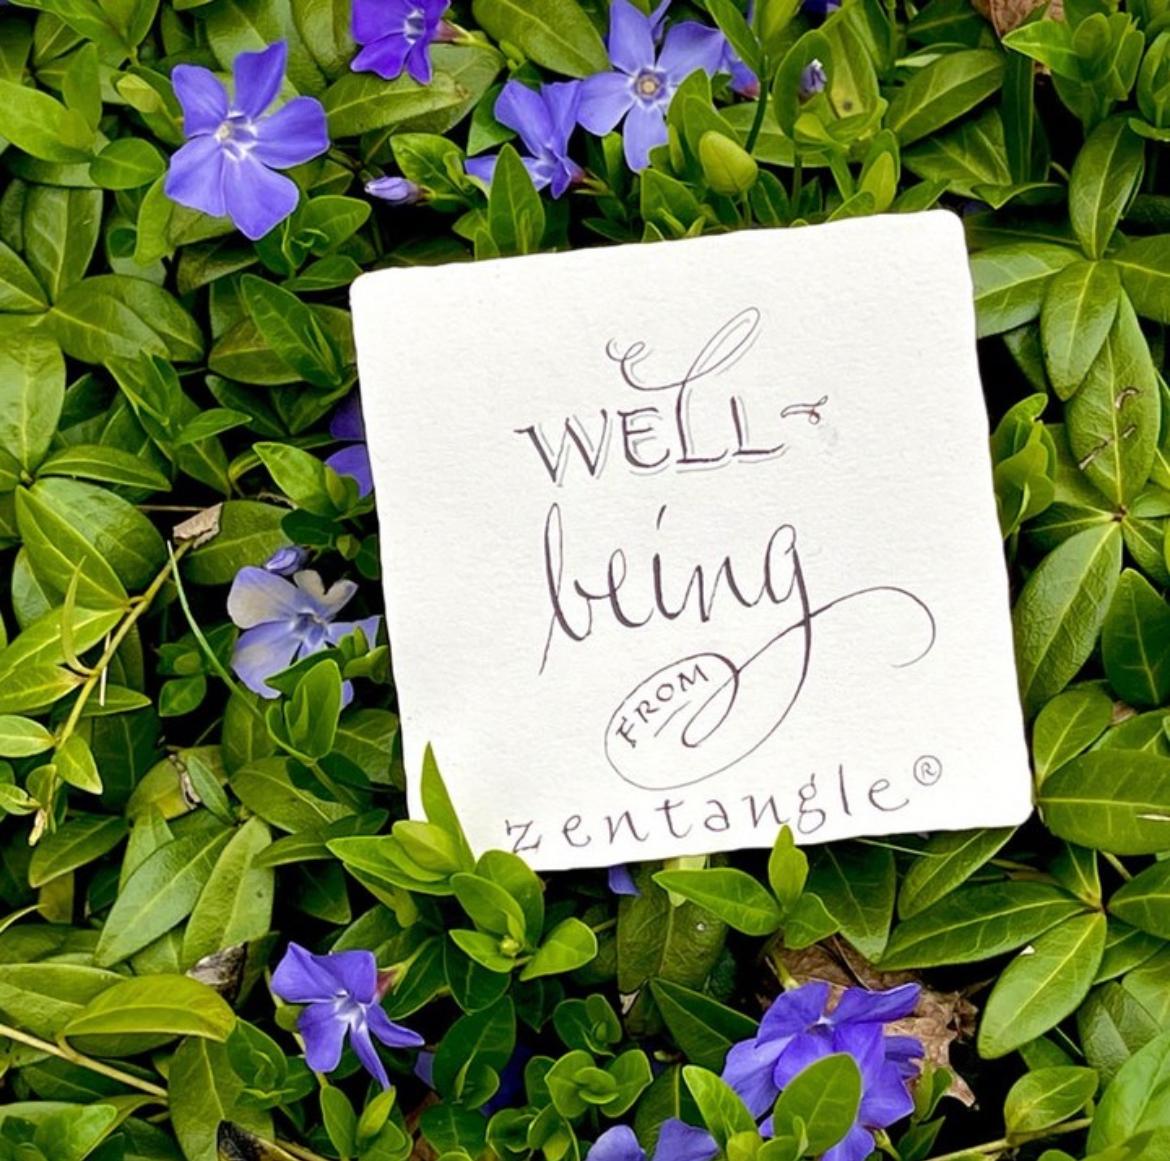 WELL-
being
FROM
zentangle®